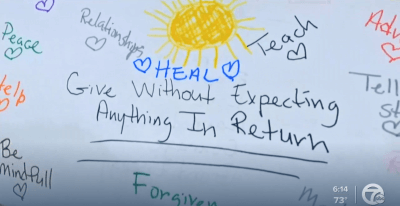 Relationships
Teach
Peace
HEAL
Give Without Expecting
Anything In Return
Tell
Be
mindfull
6:14
73°
7